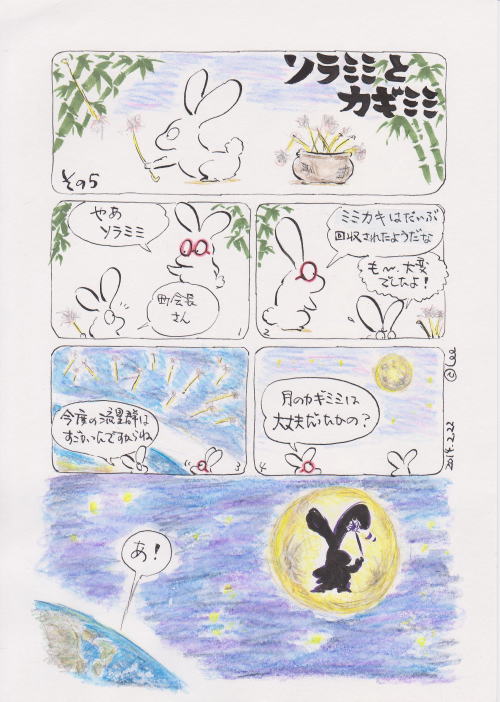 ソラミミと
カギミミ
その5
やあ
ソラミミ
町会長
さん
1
ミミカキはだいぶ
回収されたようだな
も〜、大変
でしたよ!
2
今度の流星群は
すごかったんですからね
3
月のカギミミは
大丈夫だったかの?
4
©Lee
2014.2.22
あ!